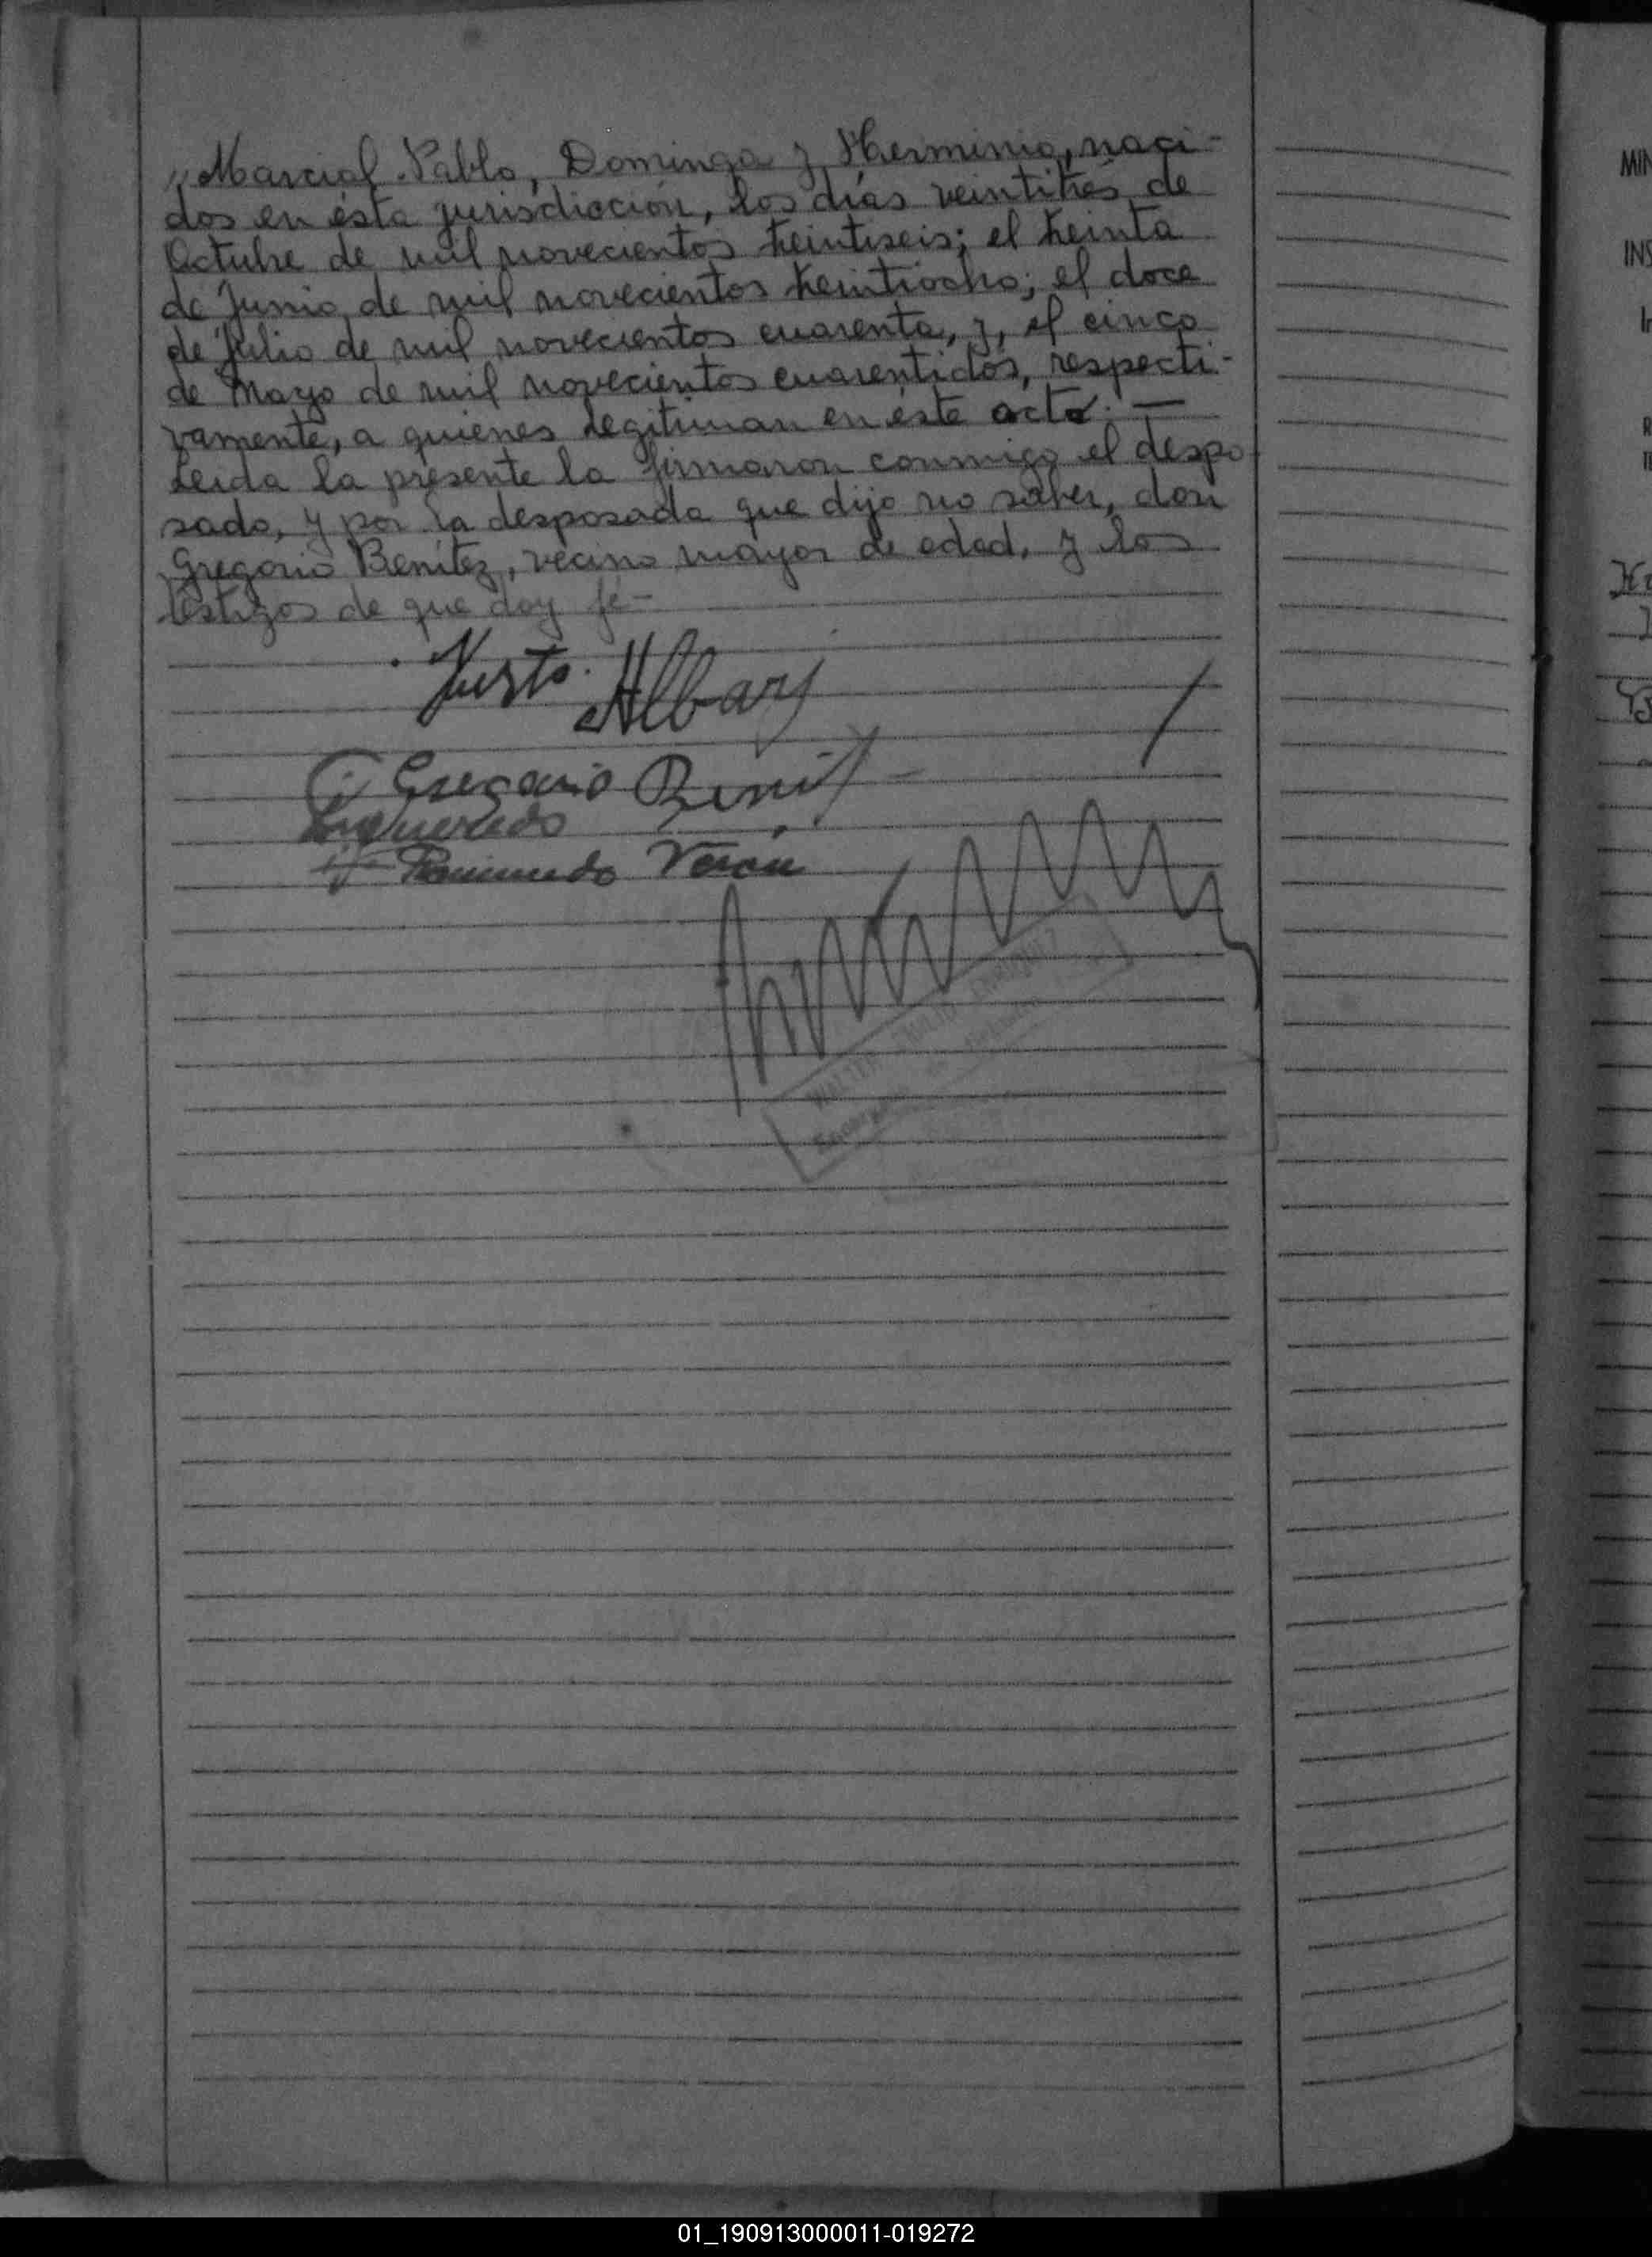 "Marcial Pablo, Dominga y Herminio, naci-
dos en ésta jurisdicción, los días veintitrés de
Octubre de mil novecientos treintiseis; el treinta
de Junio de mil novecientos treintiocho; el doce
de Julio de mil novecientos cuarenta, y, el cinco
de Mayo de mil novecientos cuarentidós, respecti-
vamente, a quienes legitiman en éste acto. —
Leida la presente la firmaron conmigo el despo-
sado, y por la desposada que dijo no saber, don
Gregorio Benítez, vecino mayor de edad, y los
testigos de que doy fé-
Justo Albary
Gregorio Benit
Raimundo Verón
WALTER
Encargado
MIN
INS
01_190913000011-019272